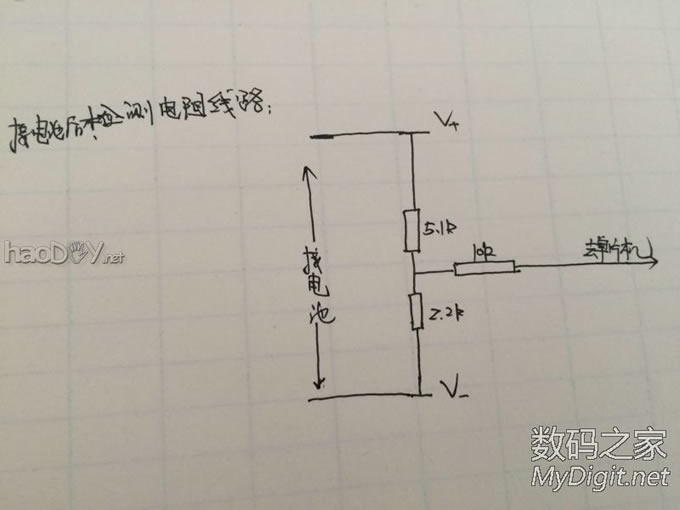 接电池后检测电阻线路:
V+
5.1k
10k
去单片机
接电池
2.2k
V-
haoDIY.net
数码之家
MyDigit.net